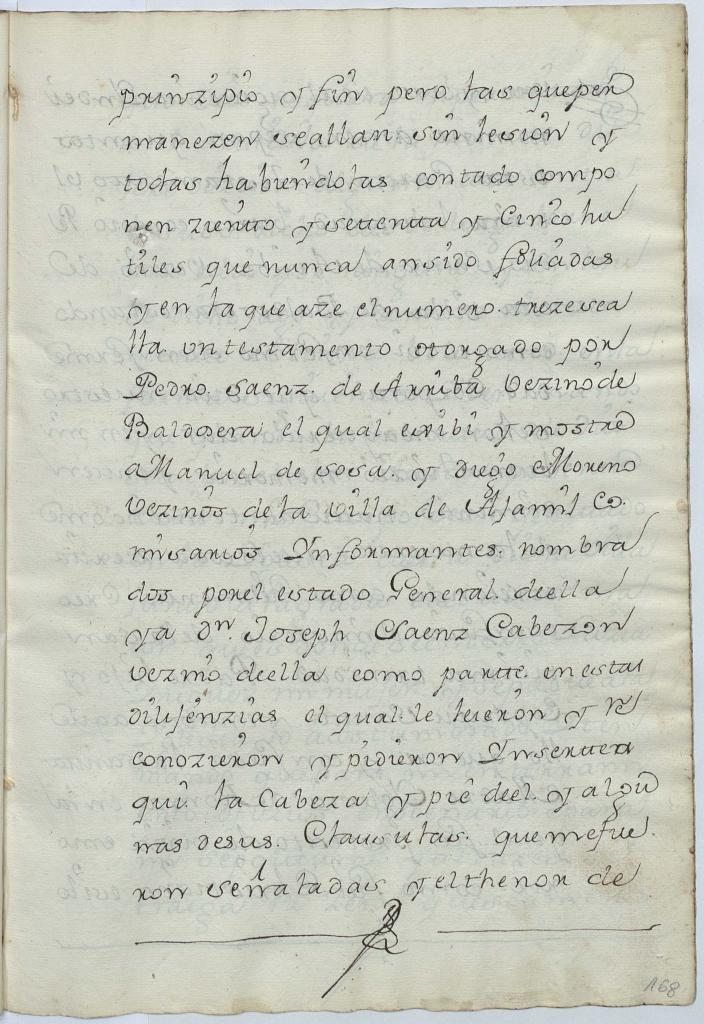 prinzipio y fin pero las queper
manezen seallan sin lesion y
todas habiendolas contado compo
nen ziento ysettentta y Cinco hu
tiles que nunca ansido foliadas
y en la que aze el numero treze sea
lla un testamento otorgado por
Pedro Saenz de Arriba Vezino de
Baldosera el qual exibi y mostre
a Manuel de sosa y Diego Moreno
Vezinos de la Villa de Ajamil Co
misarios Ynformantes nombra
dos porel estado General deella
ya Dn. Joseph Saenz Cabezon
Vezino deella como partte en estas
dilijenzias el qual le leieron y re
conozieron ypidieron Ynserttea
qui la Cabeza y pie deel y algu
nas desus Clausulas que mefue
ron señaladas yelthenor de
168